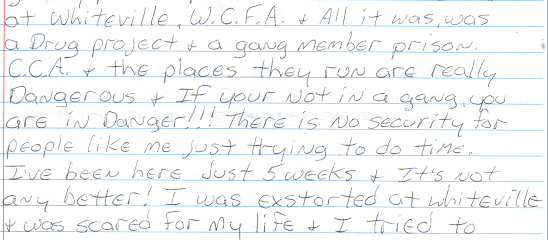 at Whiteville, W.C.F.A. & All it was, was
a Drug project & a gang member prison.
C.C.A. & the places they run are really
Dangerous & If your Not in a gang, you
are in Danger!!! There is No security for
people like me just trying to do time.
I've been here Just 5 weeks & It's Not
any better! I was exstorted at whiteville
& was scared for my life & I tried to